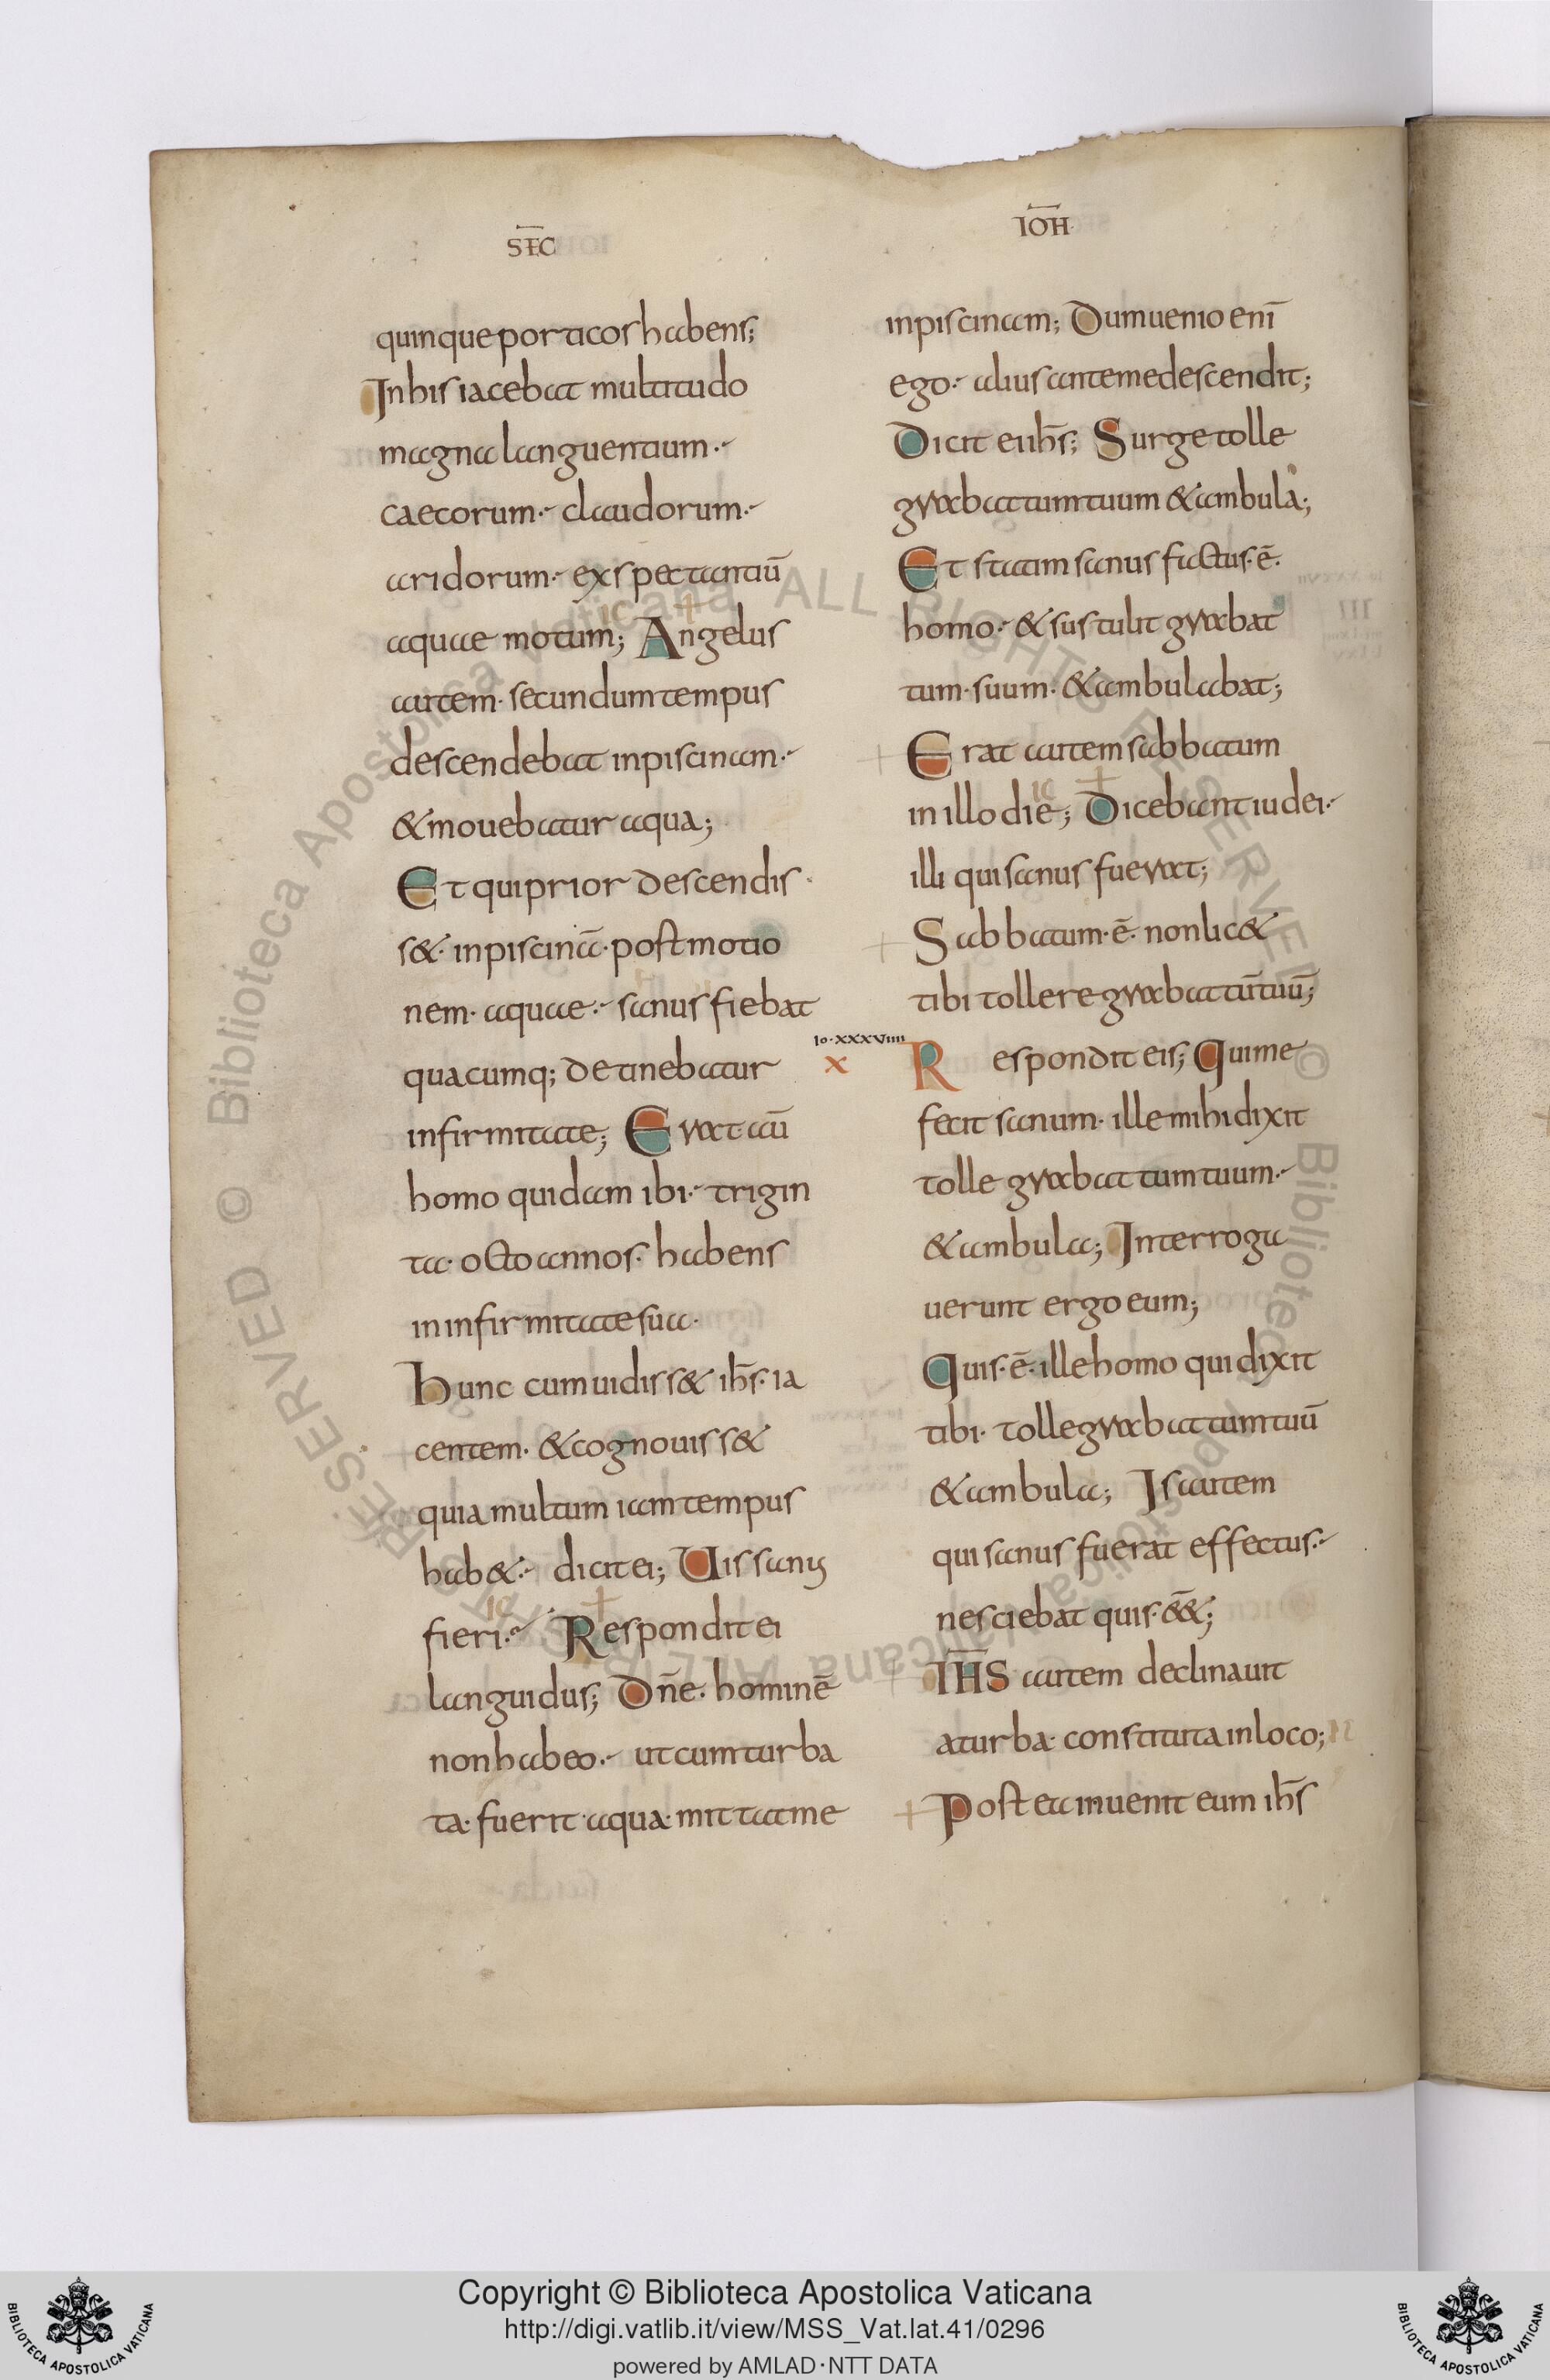 SEC̅
quinque porticos habens;
In his iacebat multitudo
magna languentium·
caecorum· claudorum·
aridorum· exspectantiū
aquae motum; Angelus
autem· secundum tempus
descendebat in piscinam·
& mouebatur aqua;
Et qui prior descendis
s&· in piscinā· post motio
nem· aquae· sanus fiebat
quacumq; detinebatur
infirmitate; Erat autē
homo quidam ibi· trigin
ta· octo annos· habens
in infirmitate sua·
Hunc cum uidiss& ihs̄· ia
centem· & cognouiss&
quia multum iam tempus
hab&· dicit ei; Uis sanus
fieri· Respondit ei
languidus; Dn̄e· hominē
non habeo· ut cum turba
ta· fuerit· aqua· mittat me
IOH̅
in piscinam; Dum uenio enī
ego· alius ante me descendit;
Dicit ei ihs̄; Surge tolle
grabattum tuum & ambula;
Et statim sanus factus· ē·
homo· & sustulit grabat
tum· suum· & ambulabat;
Erat autem sabbatum
in illo die; Dicebant iudei·
illi qui sanus fuerat;
Sabbatum· ē· non lic&
tibi tollere grabattū tuū;
Io·XXXVIIII
X
Respondit eis; Qui me
fecit sanum· ille mihi dixit
tolle grabattum tuum·
& ambula; Interroga
uerunt ergo eum;
Quis· ē· ille homo qui dixit
tibi· tolle grabattum tuū
& ambula; Is autem
qui sanus fuerat effectus·
nesciebat quis· &&̄;
IHS̅ autem declinauit
a turba· constituta in loco;
Postea inuenit eum ihs̄
Copyright © Biblioteca Apostolica Vaticana
http://digi.vatlib.it/view/MSS_Vat.lat.41/0296
powered by AMLAD·NTT DATA
BIBLIOTECA APOSTOLICA VATICANA
BIBLIOTECA APOSTOLICA VATICANA